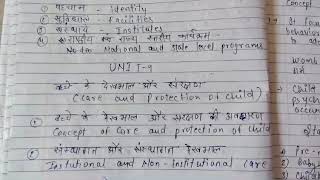 ① पहचान - Identity
② सुविधाएं - Facilities
③ संस्थाएं - Institutes
④ राष्ट्रीय एवं राज्य स्तरीय कार्यक्रम
National and state level programs
UNIT-9
बच्चे के देखभाल और संरक्षण
(Care and Protection of child)
① बच्चे के देखभाल और संरक्षण की अवधारणा
Concept of Care and protection of child
② संस्थागत और संस्थागत देखभाल
Institutional and Non-Institutional Care
Child
behavior
wom
Child
psych
occu
① Pre-
② Baby